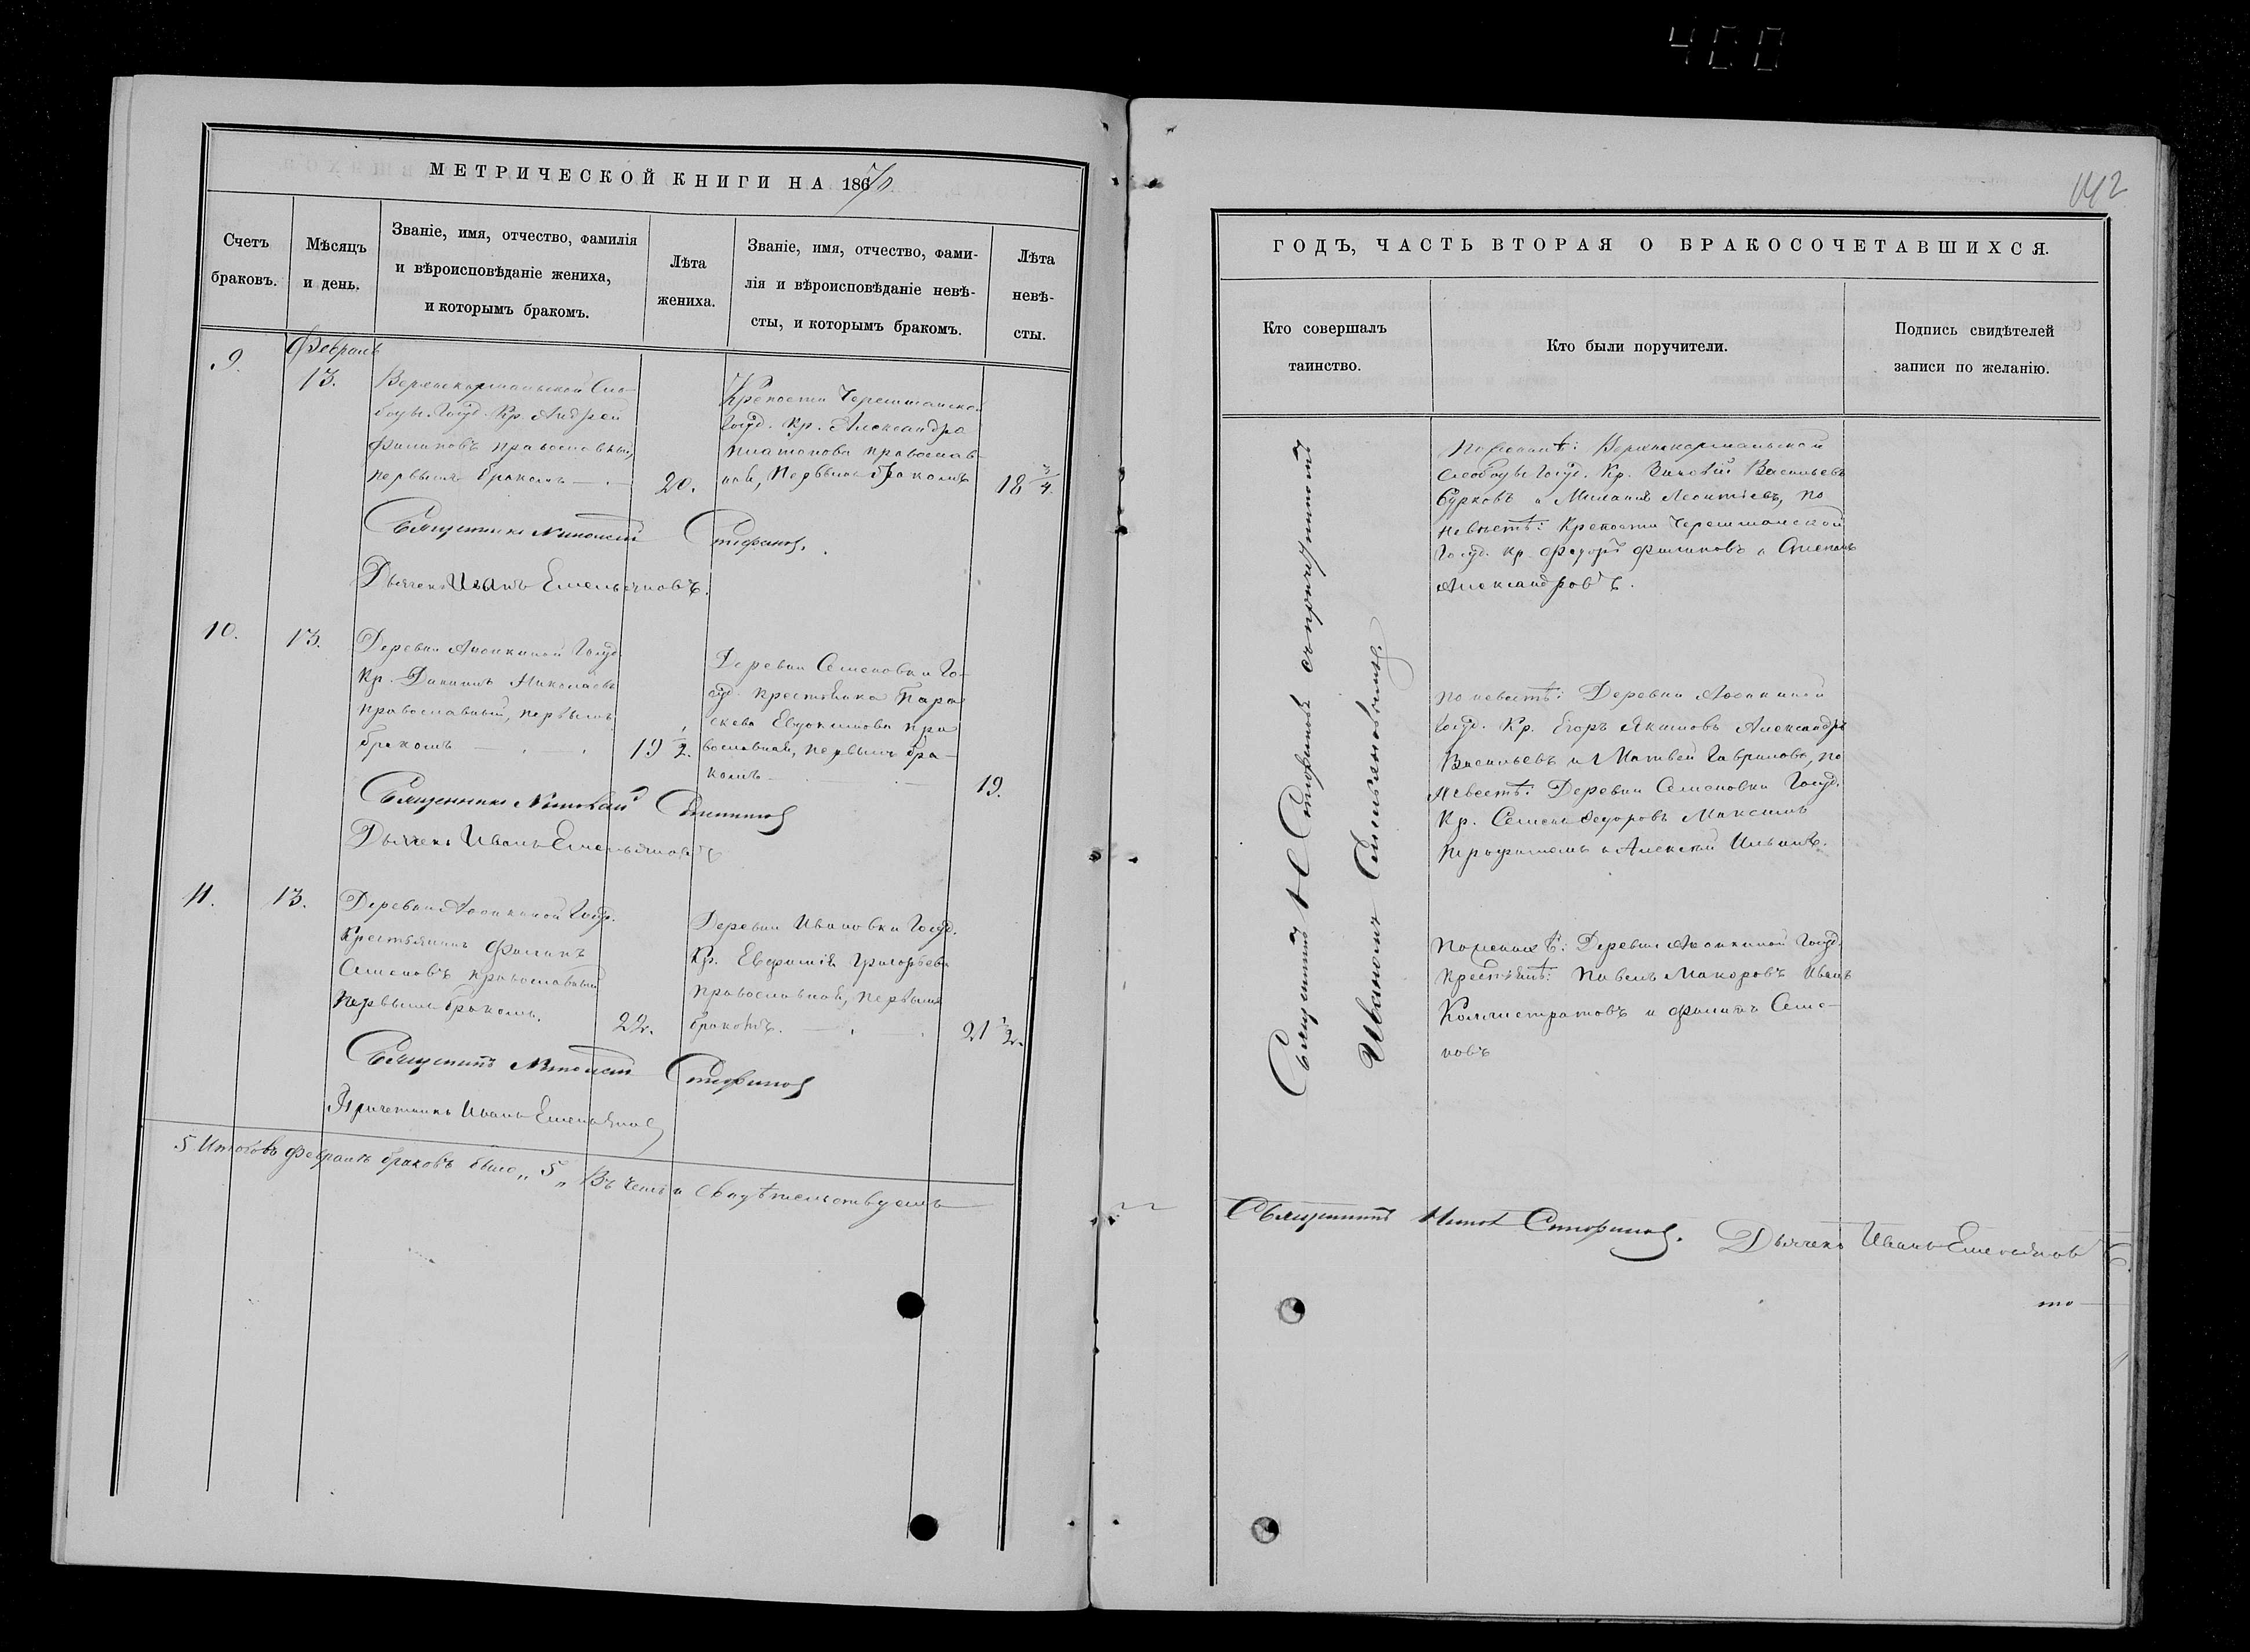 400
МЕТРИЧЕСКОЙ КНИГИ НА 1870
Счетъ браковъ.
Мѣсяцъ и день.
Званіе, имя, отчество, фамилія
и вѣроисповѣданіе жениха,
и которымъ бракомъ.
Лѣта жениха.
Званіе, имя, отчество, фами-
лія и вѣроисповѣданіе невѣ-
сты, и которымъ бракомъ.
Лѣта невѣ-
сты.
9.
Февраль
13.
Верхнекармальской Сло-
боды Госуд. Кр. Андрей
Филиповъ православный,
первымъ бракомъ
20.
Крепости Черемшанской
Госуд. Кр. Александра
Платонова православ-
ная, первымъ бракомъ
18 3/4.
Священникъ Николай Стефановъ.
Дьячекъ Иванъ Емельяновъ.
10.
13.
Деревни Госуд.
Кр. Даниилъ Николаевъ
православный, первымъ
бракомъ
19 1/2.
Деревни Семеновки Го-
суд. крестьянка Пара-
скева Евдокимова пра-
вославная, первымъ бра-
комъ
19.
Священникъ Николай Стефановъ
Дьячекъ Иванъ Емельяновъ
11.
13.
Деревни Госуд.
Крестьянинъ Филипъ
Семеновъ православный
первымъ бракомъ.
22.
Деревни Ивановки Госуд.
Кр. Евфимія Григорьева
православная, первымъ
бракомъ.
21 1/2.
Священникъ Николай Стефановъ
Причетникъ Иванъ Емельяновъ
5 Итого въ Февралѣ браковъ было „5„ Въ чемъ и свидѣтельствуемъ
142
ГОДЪ, ЧАСТЬ ВТОРАЯ О БРАКОСОЧЕТАВШИХСЯ.
Кто совершалъ
таинство.
Кто были поручители.
Подпись свидѣтелей
записи по желанію.
Священникъ Н Стефановъ съ причетникомъ
Иваномъ Емельяновымъ.
По женихѣ: Верхнекармальской
слободы Госуд. Кр. Зиновій Васильевъ
Бурковъ и Леонтіевъ, по
невѣстѣ: Крепости Черемшанской
Госуд. Кр. Федоръ Филиповъ и Степанъ
Александровъ.
По невестѣ: Деревни
Госуд. Кр. Егоръ Якимовъ Александръ
Васильевъ и Матвей Гавриловъ, по
Невестѣ: Деревни Семеновки Госуд.
Кр. Семенъ Федоровъ Максимъ
и Алексѣй Ильинъ.
По женихѣ: Деревни Госуд.
Крестьянѣ: Павелъ Макаровъ Иванъ
Каллистратовъ и Филипъ Семе-
новъ
Священникъ Никол Стефановъ. Дьячекъ Иванъ Емельяновъ